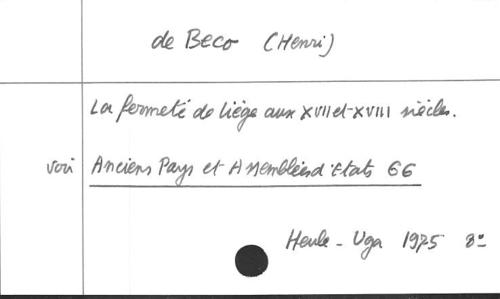 de Beco (Henri)
La fermeté de Liège aux XVII et XVIII siècles.
voir Anciens Pays et Assemblées d'Etats 66
Heule - Uga 1975 8°